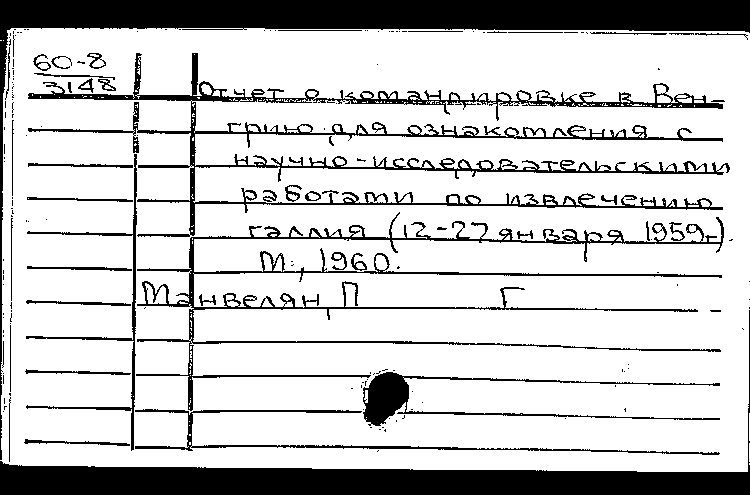 60-8
3148
Отчет о командировке в Вен-
грию для ознакомления с
научно-исследовательскими
работами по извлечению
галлия (12-27 января 1959г.).
М., 1960.
Манвелян, П Г